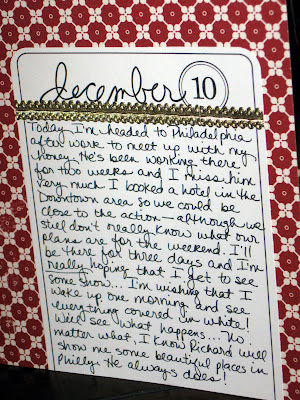 december 10
Today I'm headed to Philadelphia
after work to meet up with my
honey. He's been working there
for two weeks and I miss him
very much. I booked a hotel in the
Downtown area so we could be
close to the action - although we
still don't really know what our
plans are for the weekend. I'll
be there for three days and I'm
really hoping that I get to see
some snow... I'm wishing that I
wake up one morning and see
everything covered in white!
We'll see what happens... No
matter what, I know Richard will
show me some beautiful places in
Philly. He always does!